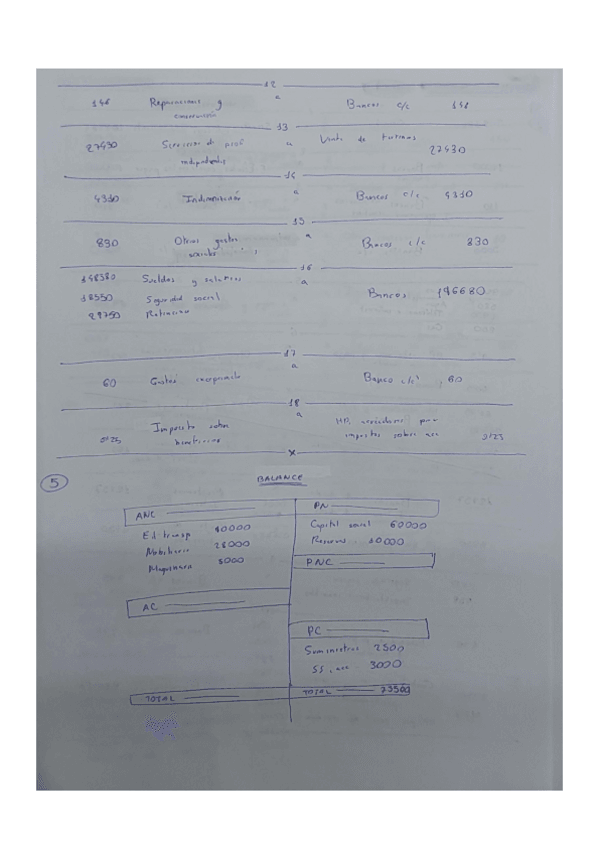 12
146 Reparaciones y a Bancos c/c 146
conservación
13
27430 Servicios de prof a Venta de turismos
independientes 27430
14
4310 Indemnización a Bancos c/c 4310
15
830 Otros gastos a Bancos c/c 830
sociales
16
148380 Sueldos y salarios a
18550 Seguridad social Bancos 196680
29750 Retención
17
a
60 Gastos excepcionales Banco c/c 60
18
a
Impuesto sobre HP, acreedora por
0'25 beneficios impuestos sobre 0'25
x
5 BALANCE
ANC PN
Ed. transp 40000 Capital social 60000
Mobiliario 28000 Reservas 10000
Maquinaria 5000 PNC
AC
PC
Suministros 2500
SS, acre 3000
TOTAL TOTAL 75500